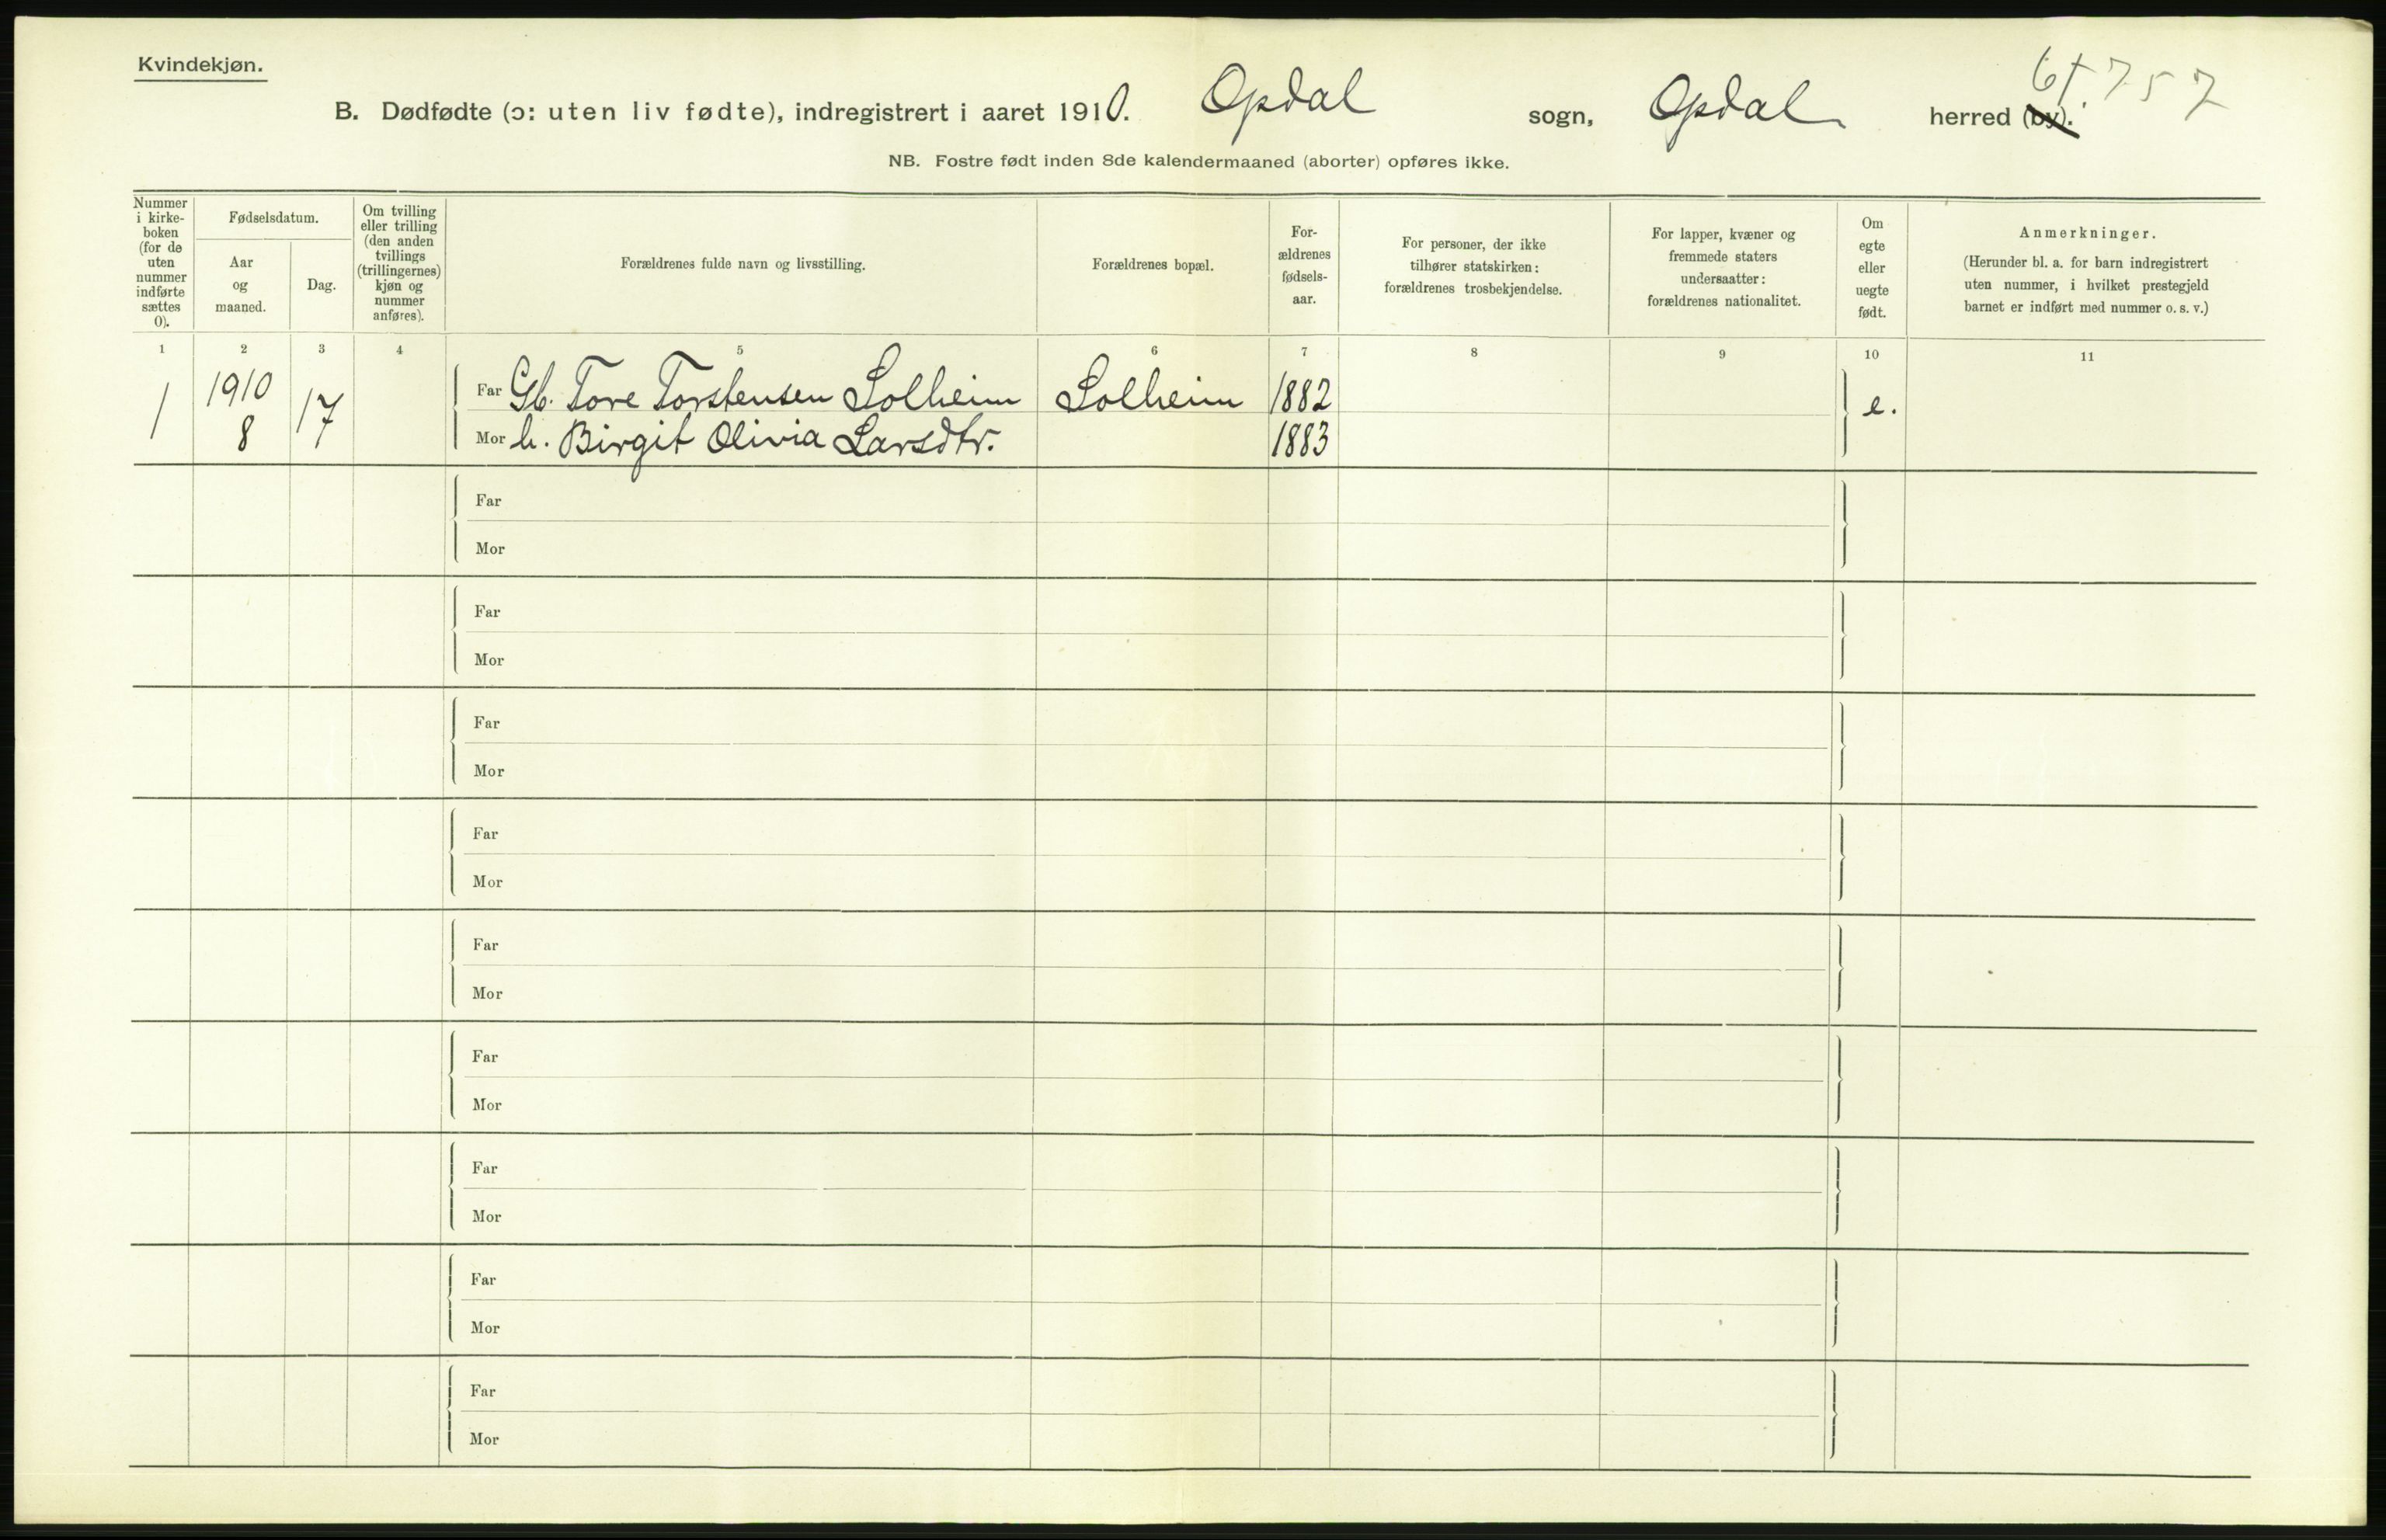 Kvindekjøn.
B. Dødfødte (ɔ: uten liv fødte), indregistrert i aaret 1910. Opdal sogn, Opdal herred (by).
757
NB. Fostre født inden 8de kalendermaaned (aborter) opføres ikke.
Nummer
i kirke-
boken
(for de
uten
nummer
indførte
sættes
0).
Fødselsdatum.
Aar
og
maaned.
Dag.
Om tvilling
eller trilling
(den anden
tvillings
(trillingernes)
kjøn og
nummer
anføres).
Forældrenes fulde navn og livsstilling.
Forældrenes bopæl.
For-
ældrenes
fødsels-
aar.
For personer, der ikke
tilhører statskirken:
forældrenes trosbekjendelse.
For lapper, kvæner og
fremmede staters
undersaatter:
forældrenes nationalitet.
Om
egte
eller
uegte
født.
Anmerkninger.
(Herunder bl. a. for barn indregistrert
uten nummer, i hvilket prestegjeld
barnet er indført med nummer o. s. v.)
1 2 3 4 5 6 7 8 9 10 11
1 1910 8 17
Far Gb. Tore Torstensen Solheim Solheim 1882 e.
Mor h. Birgit Olivia Larsdtr. 1883
Far
Mor
Far
Mor
Far
Mor
Far
Mor
Far
Mor
Far
Mor
Far
Mor
Far
Mor
Far
Mor